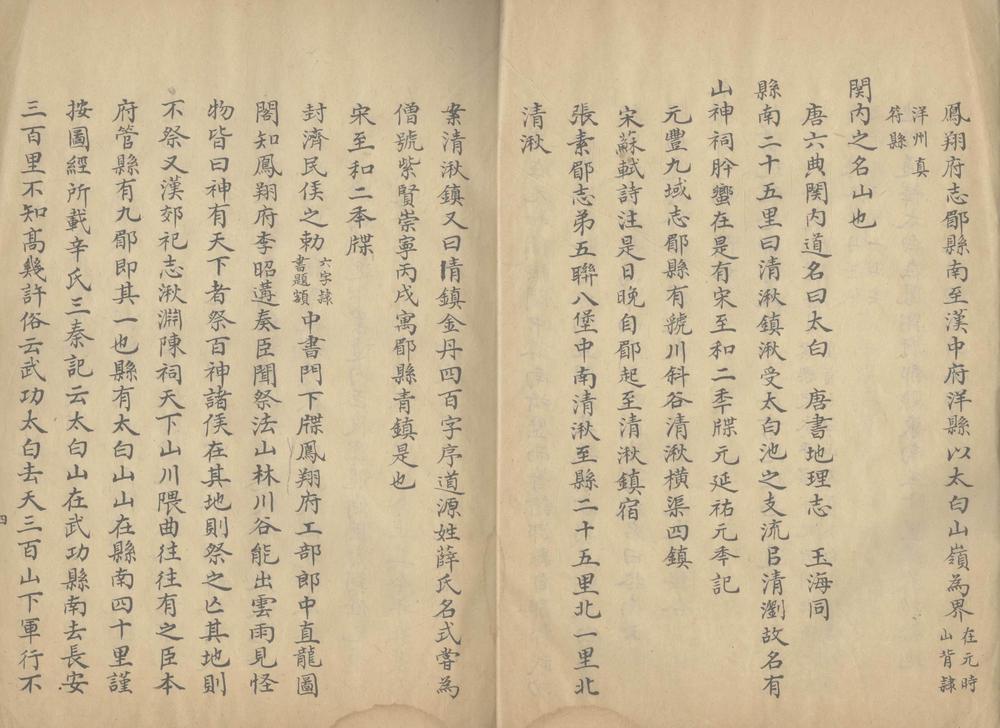 鳳翔府志郿縣南至漢中府洋縣以太白山嶺為界在元時山背隸
洋州真符縣
関内之名山也
唐六典関内道名曰太白　唐書地理志　玉海同
縣南二十五里曰清湫鎮湫受太白池之支流㠯清瀏故名有
山神祠肸蠁在是有宋至和二秊牒元延祐元秊記
元豐九域志郿縣有虢川斜谷清湫橫渠四鎮
宋蘇軾詩注是日晚自郿起至清湫鎮宿
張素郿志弟五聯八堡中南清湫至縣二十五里北一里北
清湫
案清湫鎮又曰清鎮金丹四百字序道源姓薛氏名式嘗為
僧號紫賢崇寧丙戌寓郿縣青鎮是也
宋至和二秊牒
封濟民侯之勅六字隷書題額中書門下牒鳳翔府工部郎中直龍圖
閣知鳳翔府李昭遘奏臣聞祭法山林川谷能出雲雨見怪
物皆曰神有天下者祭百神諸侯在其地則祭之亾其地則
不祭又漢郊祀志湫淵陳祠天下山川隈曲往往有之臣本
府管縣有九郿即其一也縣有太白山山在縣南四十里謹
按圖經所載辛氏三秦記云太白山在武功縣南去長安
三百里不知髙幾許俗云武功太白去天三百山下軍行不
四